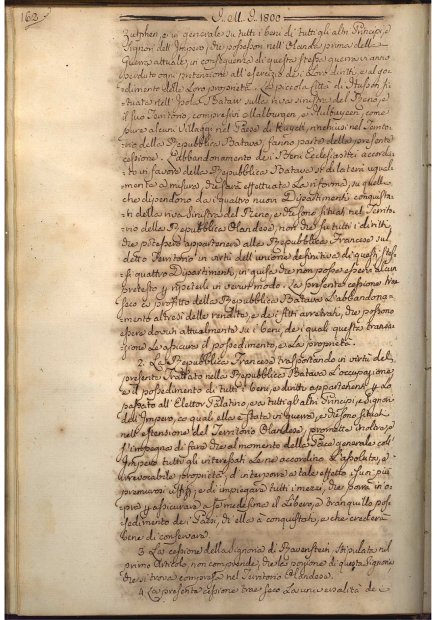 162.
J. M. J. 1800
Zutphen, e in generale su tutti i beni di tutti gli altri Principi, e
Signori dell'Impero, che possedon nell'Olanda prima della
Guerra attuale, in conseguenza di questa stessa guerra vi anno
perduto ogni pretenzione all'esercizio de i Loro diritti, e al go-
dimento delle Loro proprietà. La piccola Città di Hussen si-
tuata nell'Isola Batava sulla riva sinistra del Reno, e
il suo Territorio, compresivi Malburgen, e Hulhuyzen, come
pure alcuni Villaggi nel Paese di Kuyck, rinchiusi nel Territo-
rio della Repubblica Batava, fanno parte della presente
cessione. L'abbandonamento de i Beni Ecclesiastici accorda-
to in favore della Repubblica Batava si dilaterà ugual-
mente a misura, che sarà effettuata La riforma, su quelli
che dipendono da i quattro nuovi Dipartimenti conquista-
ti della riva sinistra del Reno, e che sono situati nel Territo-
rio della Repubblica Olandese, non che su tutti i diritti,
che potessero appartenere alla Repubblica Francese sul
detto Territorio in virtù dell'unione definitiva di questi stes-
si quattro Dipartimenti, in guisa che non possa esservi alcun
pretesto per ripeterli in verun modo. La presente cessione tra
seco a profitto della Repubblica Batava L'abbandona-
mento altresì delle rendite, e de i fitti arretrati, che possono
essere dovuti attualmente su i beni, de i quali questa transa-
zione Le assicura il possedimento, e La proprietà.
2. La Repubblica Francese trasportando in virtù del
presente Trattato nella Repubblica Batava L'occupazione,
e il possedimento di tutti i beni, e diritti appartenenti per lo
passato all'Elettor Palatino, e a tutti gli altri Principi, e Signori
dell'Impero, co i quali ella è stata in guerra, e che sono situati
nell'estensione del Territorio Olandese, promette inoltre, e
s'impegna di fare che al momento della Pace generale coll'
Impero tutti gli interessati Le ne accordino L'assoluta, e
irrevocabile proprietà, d'interporre a tale effetto i suoi più
premurosi uffizj, e di impiegare tutti i mezzi, che
per assicurare a se medesima il Libero, e tranquillo pos-
sedimento de i Paesi, ch'ella à conquistati, e che crederà
bene di conservare.
3. La cessione della signoria di Ravenstein stipulata nel
primo Articolo, non comprende, che la porzione di questa signoria
che si trova compresa nel Territorio Olandese.
4. La presente cessione trae seco La universalità de i